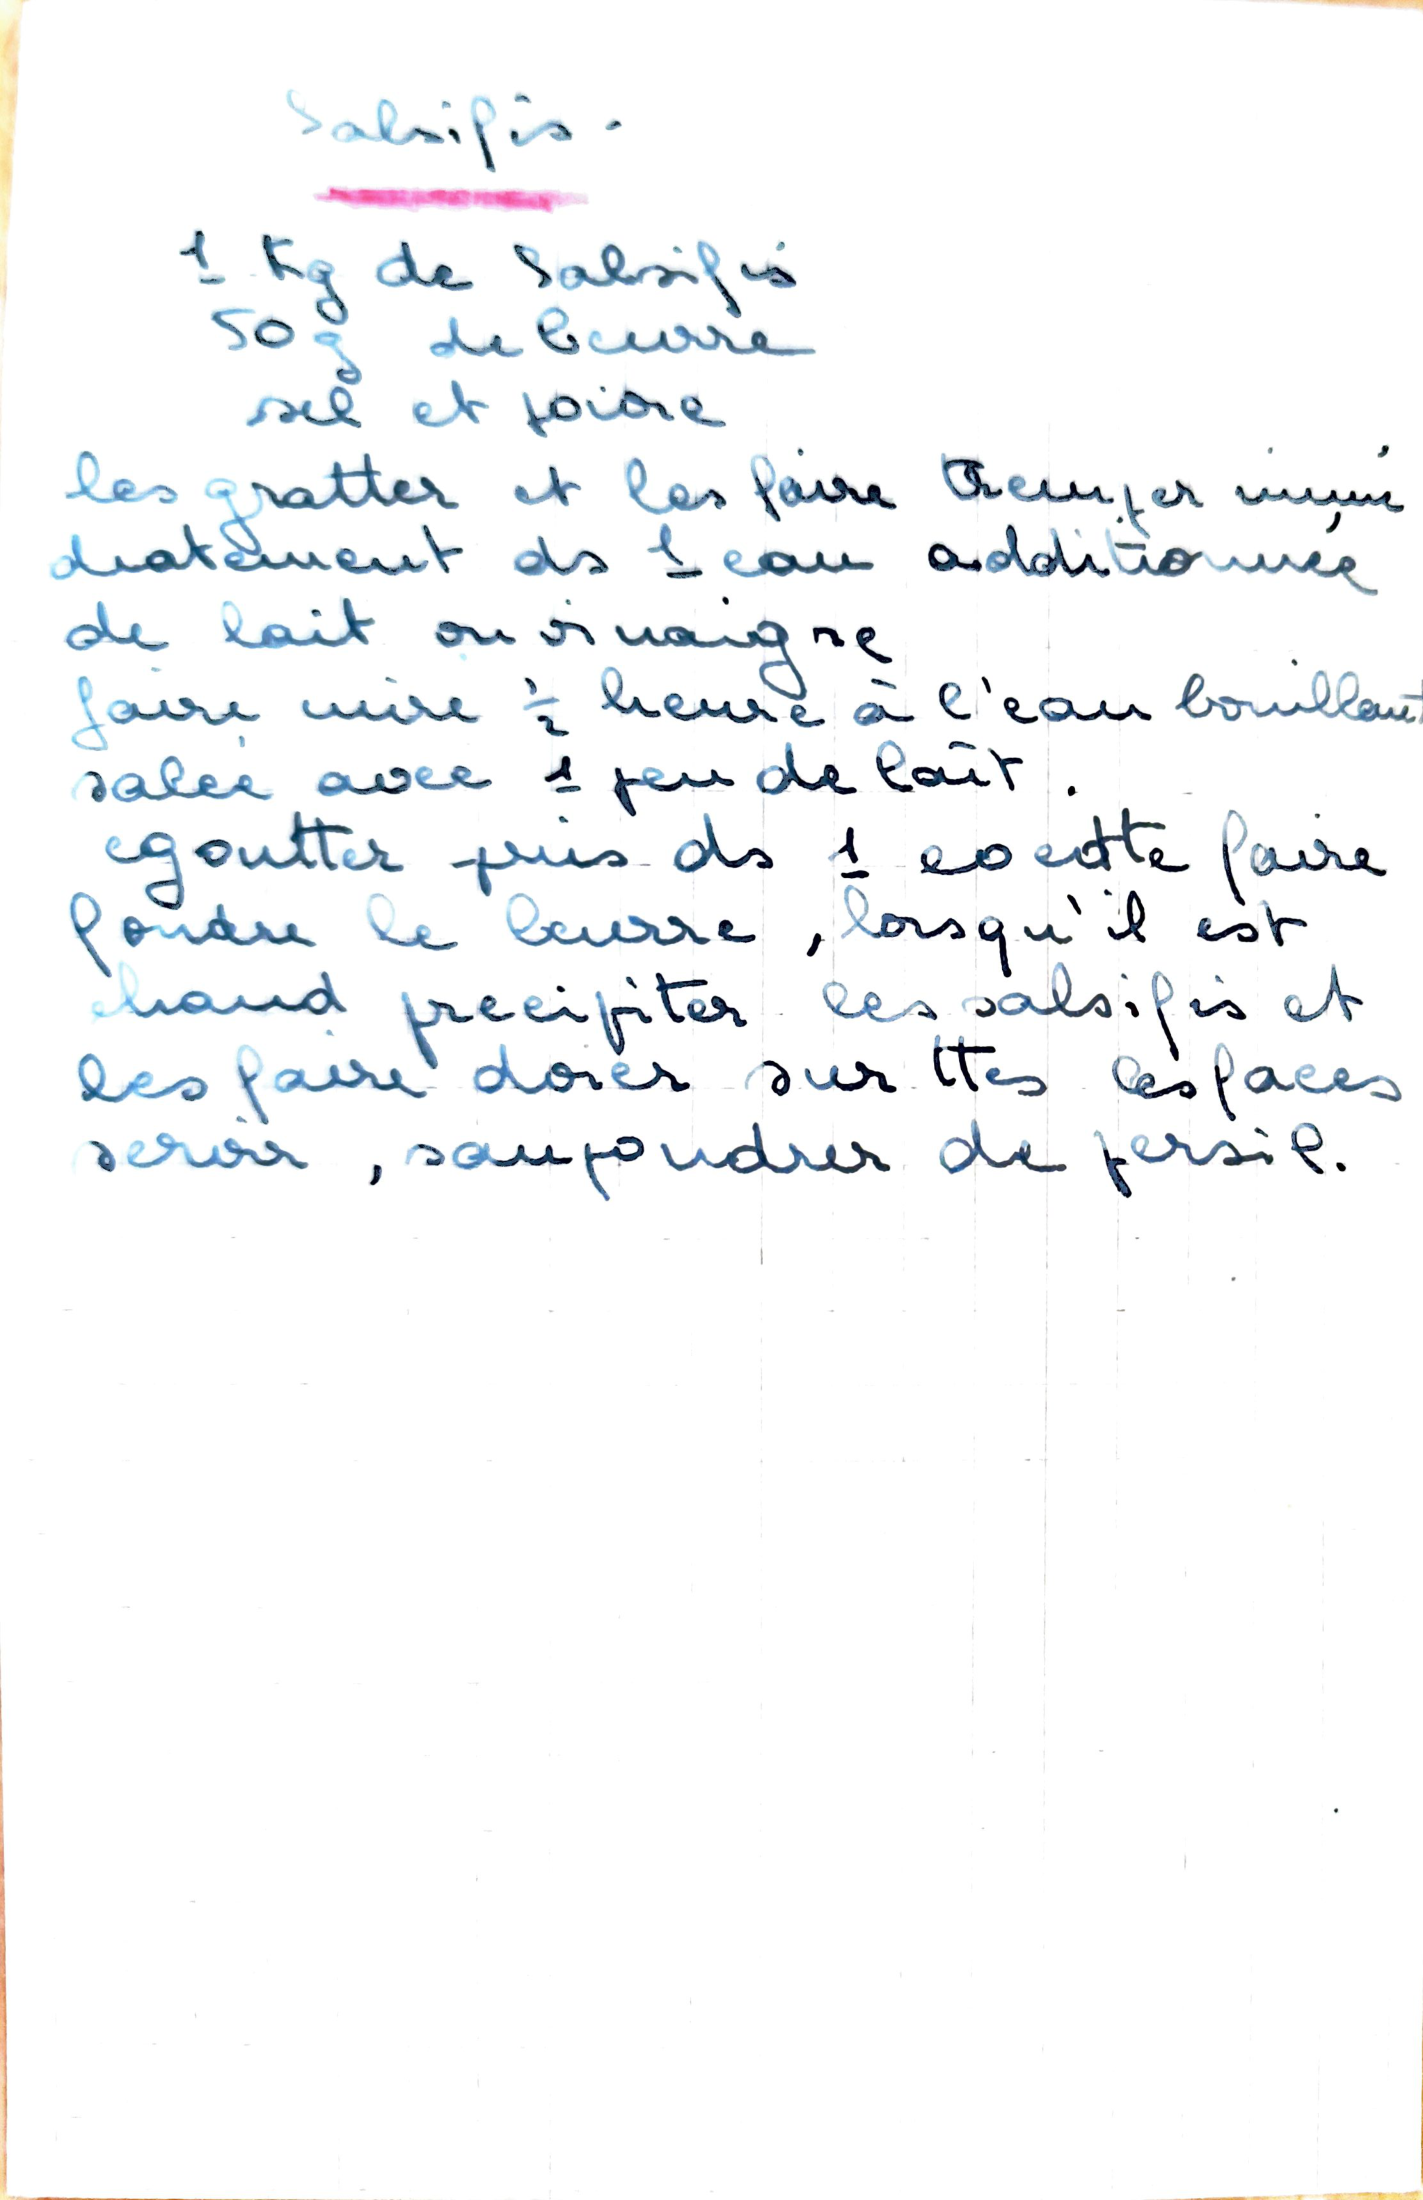 Salsifis.
1 Kg de Salsifis
50 g de beurre
sel et poivre
les gratter et les faire tremper immé
diatement ds 1 eau additionnée
de lait ou vinaigre
faire cuire 1/2 heure à l'eau bouillant
salée avec 1 peu de lait.
egoutter puis ds 1 cocotte faire
fondre le beurre, lorsqu'il est
chaud precipiter les salsifis et
les faire dorer sur ttes les faces
servir, saupoudrer de persil.